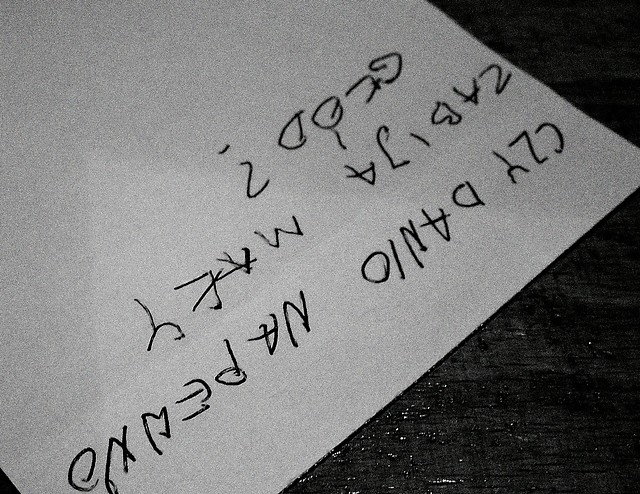 CZY DANIO NAPEWNO
ZABIJA MAŁY
GŁÓD?